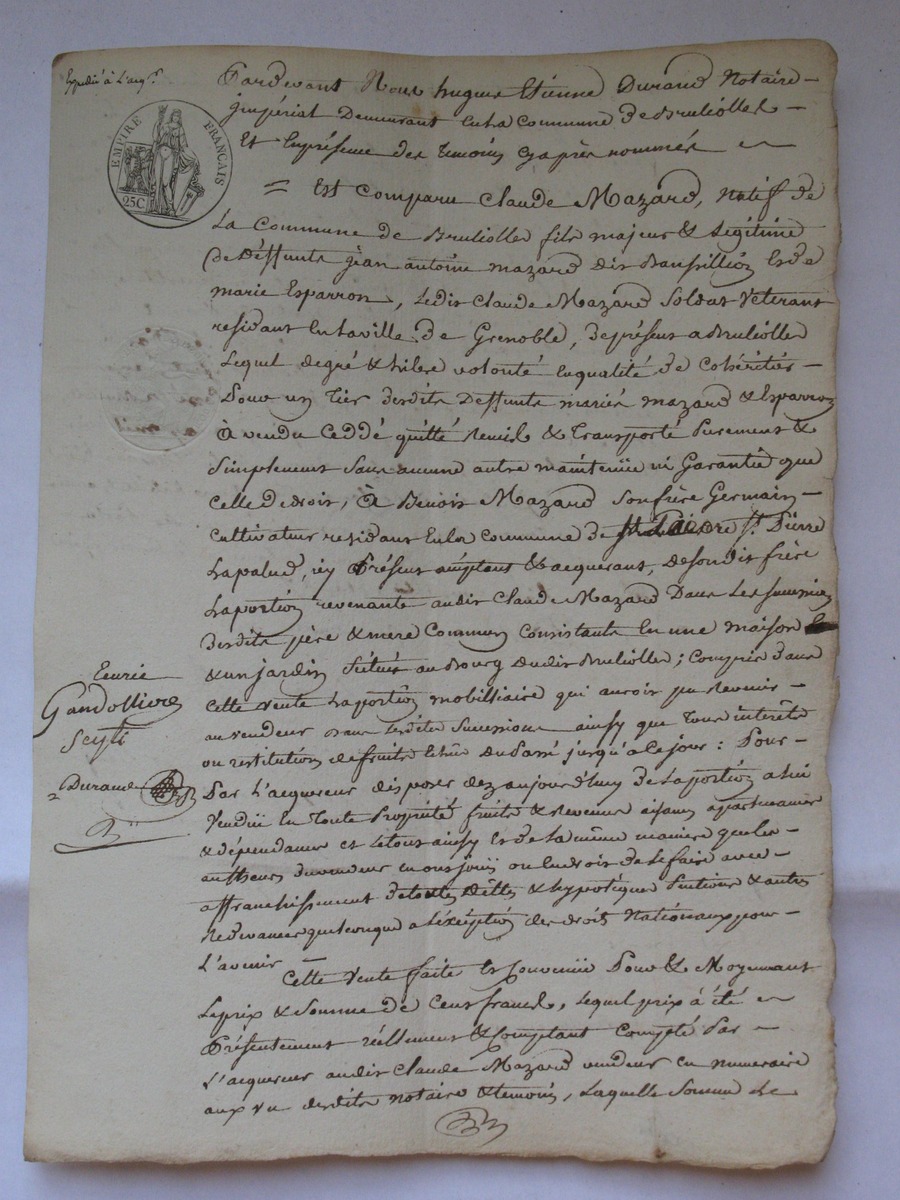 Expedié à L'acq.r
EMPIRE FRANÇAIS
25C
Pardevant Nous hugues Etienne Durand Notaire
jmpérial Demeurant En la Commune de Brullolles
Et En présence des Temoins Cy après nommés
= Est Comparu Claude Mazard, Natif de
La Commune de Brullolles fils majeur & Légitime
de Déffunts jean antoine mazard dit Et de
marie Esparron, Ledit Claude Mazard Soldat Veterant
residant En La ville de Grenoble, de présent a Brullolles
Lequel de gré & Libre volonté En qualité de Cohéritier
Pour un Tier desdits Deffunts mariés mazard & Esparron
À vendu Ceddé quitté Remis & Transporté Purement &
Simplement Sans aucune autre maintenüe ni Garantie que
Celle de droit, À Benoit Mazard Son frère Germain
Cultivateur residant En la Commune de St Pierre
Lapalud, icy Présent acceptant & acquerant, de Son dit frère
La portion revenante audit Claude Mazard Dans Les Succession
desdits père & mere Communs Consistante En une maison
& un jardin Situés au Bourg dudit Brullolles; Compris dans
Cette Vente La portion mobilliaire qui auroit pu Revenir
au vendeur dans Lesdites Successions ainsy que Tous interêts
ou restitution de fruits Echus du Passé jusqu'a Ce jour: Pour
Par L'acquereur disposer dez aujourd'huy de La portion a Lui
Vendüe En Toute Propriété fruits & Revenus aisances apartenances
& dépendances Et Le tout ainsy Et de La même manière que Les
autheurs du vendeur En ont joüi ou En droit de Le faire avec
affranchissement de toutes Dêttes & hypotèques Pentions & autres
Redevances quelconques a L'éxception des droits Nationaux pour
L'avenir
Cette Vente faite Et Convenüe Pour & Moyennant
Le prix & Somme de Cent francs, Lequel prix à été
Présentement réellement & Comptant Compté Par
L'acquereur audit Claude Mazard vendeur en numeraire
aux vu desdits notaire & temoins, Laquelle Somme Le
Gandollivre
Durand